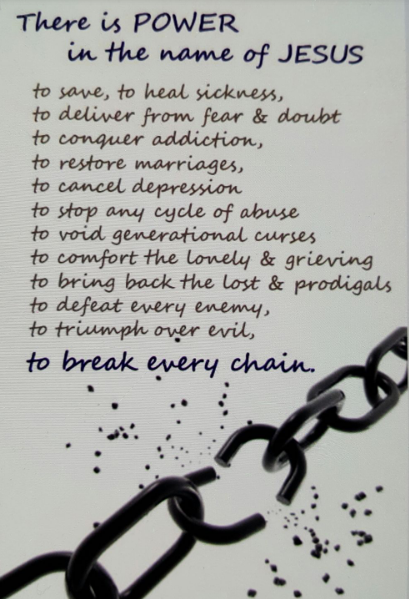 There is POWER
in the name of JESUS
to save, to heal sickness,
to deliver from fear & doubt
to conquer addiction,
to restore marriages,
to cancel depression
to stop any cycle of abuse
to void generational curses
to comfort the lonely & grieving
to bring back the lost & prodigals
to defeat every enemy,
to triumph over evil,
to break every chain.